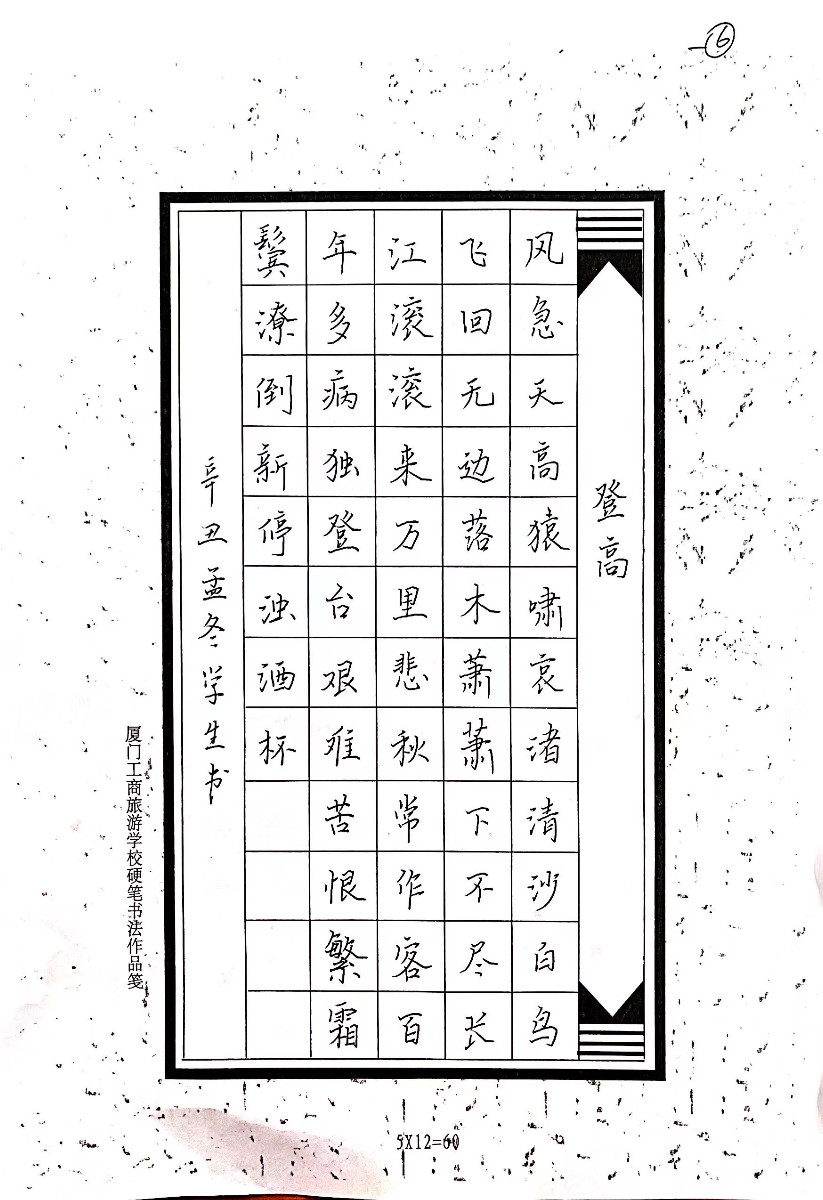 ⑥
登高
风急天高猿啸哀渚清沙白鸟
飞回无边落木萧萧下不尽长
江滚滚来万里悲秋常作客百
年多病独登台艰难苦恨繁霜
鬓潦倒新停浊酒杯
辛丑孟冬学生书
厦门工商旅游学校硬笔书法作品笺
5X12=60